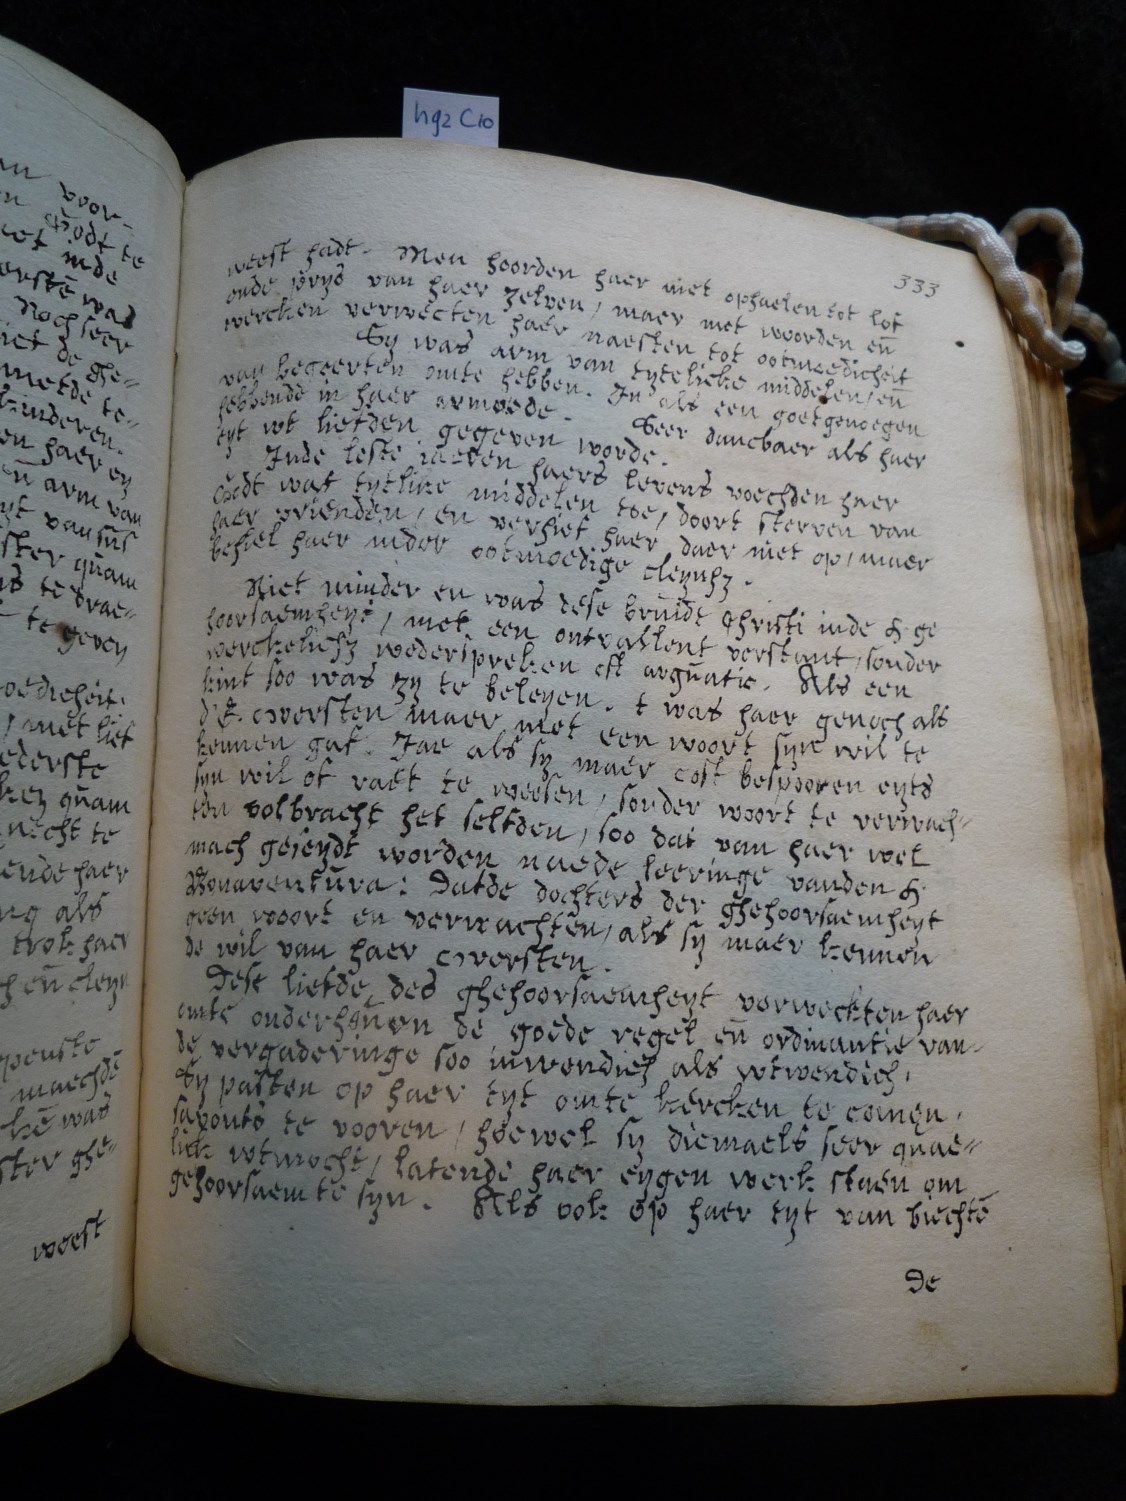 hg2 C10
333
weest hadt. Men hoorden haer niet ophaelen tot lof
onde prijs van haer zelven, maer met woorden eñ
wercken verwecten haer naesten tot ootmoedicheit
Sy was arm van tytelieke middelen, eñ
van begeerten omte hebben. In als een goetgenoegen
hebbende in haer armoede. Seer dancbaer als haer
iyt wt liefden gegeven worde.
Inde leste iaeren haers levens voechden haer
Godt wat tytlike middelen toe, doort sterven van
haer vrienden, en verhief haer daer niet op, maer
behiel haer inder ootmoedige cleynhz.
Niet minder en was dese bruidt Christi inde H. ge
hoorsaemheyt, met een ontvallent verstant, sonder
werckeliehz wederspreken oft arguatie. Als een
kint soo was zy te beleyen. t was haer genoch als
d'E. oversten maer met een woort syn wil te
kennen gaf. Jae als sy maer cost bespooren eyts
syn wil of raet te weesen, sonder woort te verwach-
ten volbracht het selfden, soo dat van haer wel
mach geseydt worden naede leeringe vanden H.
Bonaventura: Datde dochters der ghehoorsaemheyt
geen woort en verwachten, als sy maer kennen
de wil van haer oversten.
Dese liefde des ghehoorsaemheyt verweckten haer
omte onderhouwen de goede regel eñ ordinantie van
de vergaderinge soo inwendich als wtwendich,
Sy pasten op haer tyt omte kercken te comen,
savonts te vooren, hoewel sy diemaels seer quae-
liek wtmocht, latende haer eygen werk staen om
gehoorsaem te syn. Als ook op haer tyt van biechtē
De
an voor-
Godt te
inde
erstē was
Noch seer
niet de ghe-
metde te-
kinderen.
en haer en
eñ arm van
yt van sūs
ster quam
ns te drae-
te geven
oedicheit.
, met lief
ederste
quam
nicht te
ende haer
ng als
trok haer
eñ cleyn
penste
maechdē
kē was
ster ghe-
weest